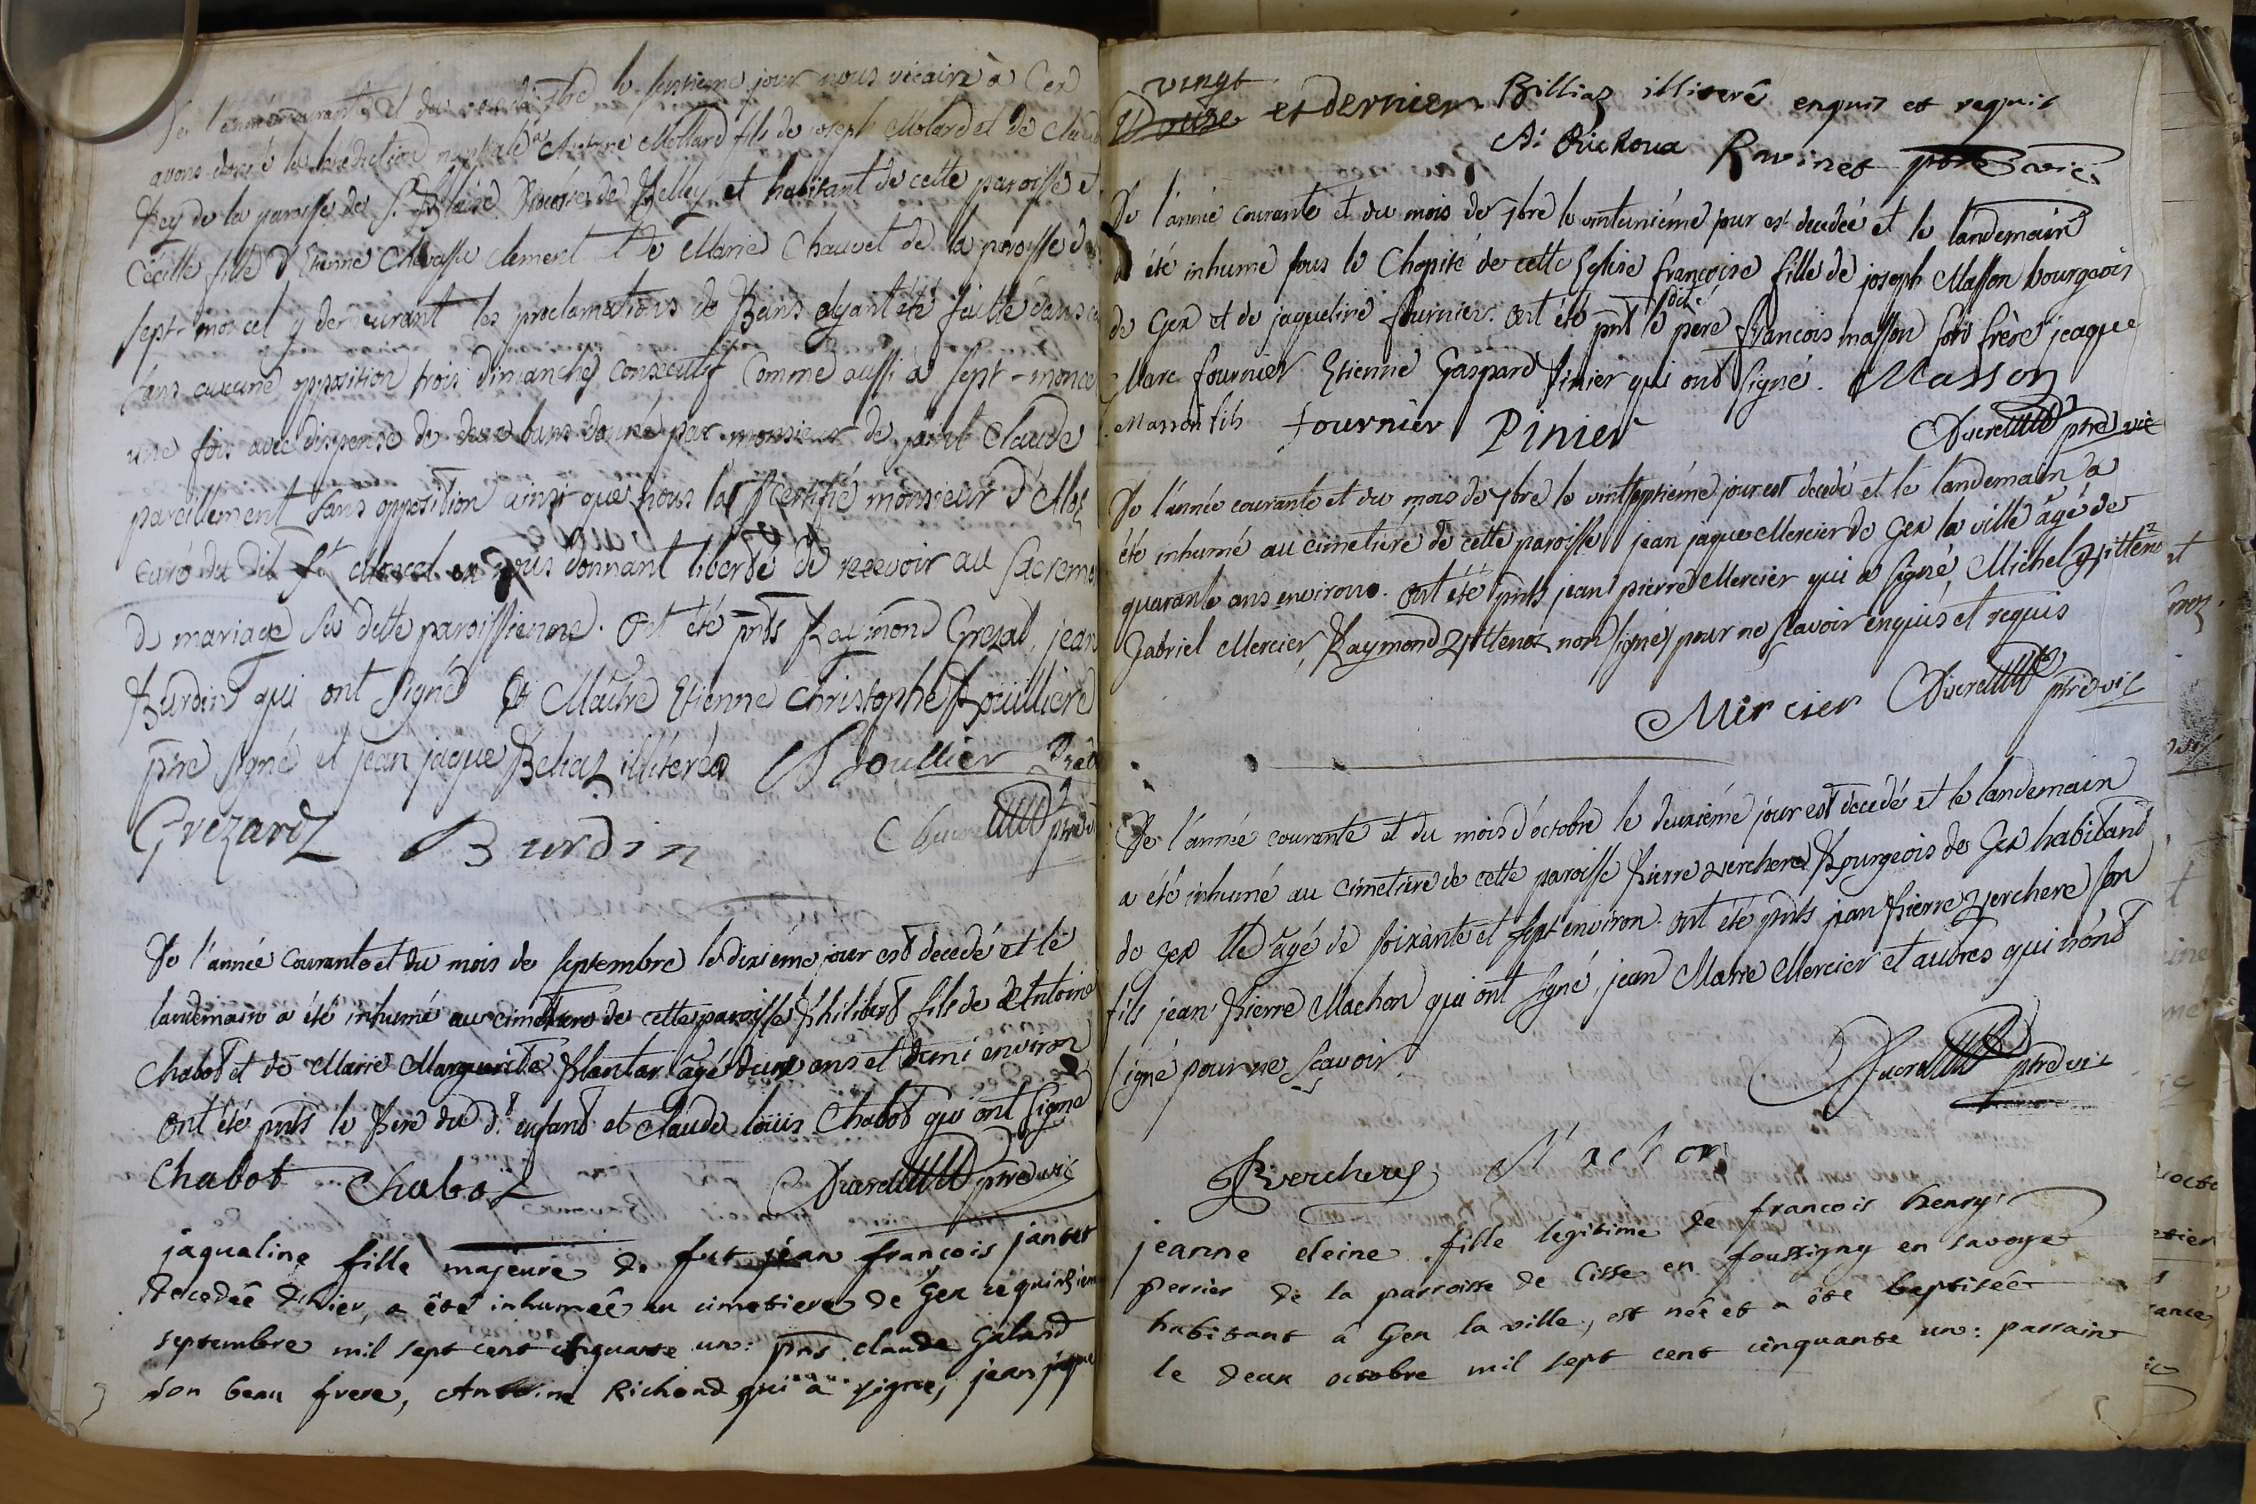 De l'année courante et du mois de 7bre le septieme jour nous vicaire à Gex
avons donné la benediction nuptiale à Antoine Mollard fils de joseph Molard et de Claud
Rey de la paroisse de St Blaise Diocése de Belley et habitant de cette paroisse et
Cécille fille d'Etienne Chevassu clement et de Marie Chauvet de la paroisse de
sept-moncel y demeurant les proclamations de Bans ayant été faitte dans
sans aucune opposition trois dimanches consecutif Comme aussi à sept-monce
une fois avec dispense de deux bans donné par monsieur de saint Claude
pareillement sans opposition ainsi que nous la certifié monsieur
curé du dit St Moncel en nous donnant liberté de recevoir au sacreme
de mariage sa ditte paroissienne. Ont été pnts Raymond Grezat, jean
Burdin qui ont signé et Maitre Etienne Christophe Roüilliere
ptre signé et jean jaque Beliaz illiteréa Roullier
Grezard Burdin ptre
De l'année Courante et du mois de septembre le dixiéme jour est decedé et le
landemain a été inhumé au cimetiere de cette paroisse Philibert fils de Antoine
Chabot et de Marie Marguerite Plantar agé deux ans et demi environ
Ont été pnts le Pere du dt enfant et Claude loüis Chabot qui ont signe
Chabot Chabot Ducret ptre vic
jaqualine fille majeure de fut jean françois jantet
decedée d'hier, a été inhumeé au cimetiere de Gex ce quinzieme
septembre mil sept cent cinquante un: pns claude Galand
son beau frere, Antoine Richond, qui a signe, jean jaque
vingt
Douze et dernier Billiaz illiteré enquis et requis
A: Richoud Ravinet ptre vic.
De l'année courante et du mois de 7bre le vintuniéme jour est decedeé et le landemain
a été inhumé sous le Chapité de cette Eglise françoise fille de joseph Masson bourgeois
de Gex et de jaqueline fournier. Ont été pnt le dit pere françois masson son frère jeaque
Marc fournier Etienne Gaspard Pinier qui ont signé. Masson
Masson fils Fournier Pinier Ducret ptre vic
De l'année courante et du mois de 7bre le vintseptiéme jour est decedé et le landemain a
été inhumé au cimetiere de cette paroisse jean jaque Mercier de Gex la ville âgé de
quarante ans environ. Ont été pnts jean pierre Mercier qui a signé, Michel
Gabriel Mercier, Raymond non signés pour ne sçavoir enquis et requis
Mercier Ducret ptre vic
De l'année courante et du mois d'octobre le deuxiéme jour est decedé et le landemain
a été inhumé au cimetiere de cette paroisse Pierre verchere Bourgeois de Gex habitant
de gex lle âgé de soixante et sept environ. Ont été pnts jean Pierre verchere son
fils jean Pierre Machon qui ont signé, jean Marie Mercier et autres qui n'ont
signé pour ne scavoir. Ducret ptre vic
P verchere Machon
jeanne fille legitime de francois henry
perrier de la parroisse de Cisse en foussigny en savoye
habitant à Gex la ville, est née et a éte baptiseé
le deux octobre mil sept cent cinquante un: parrain